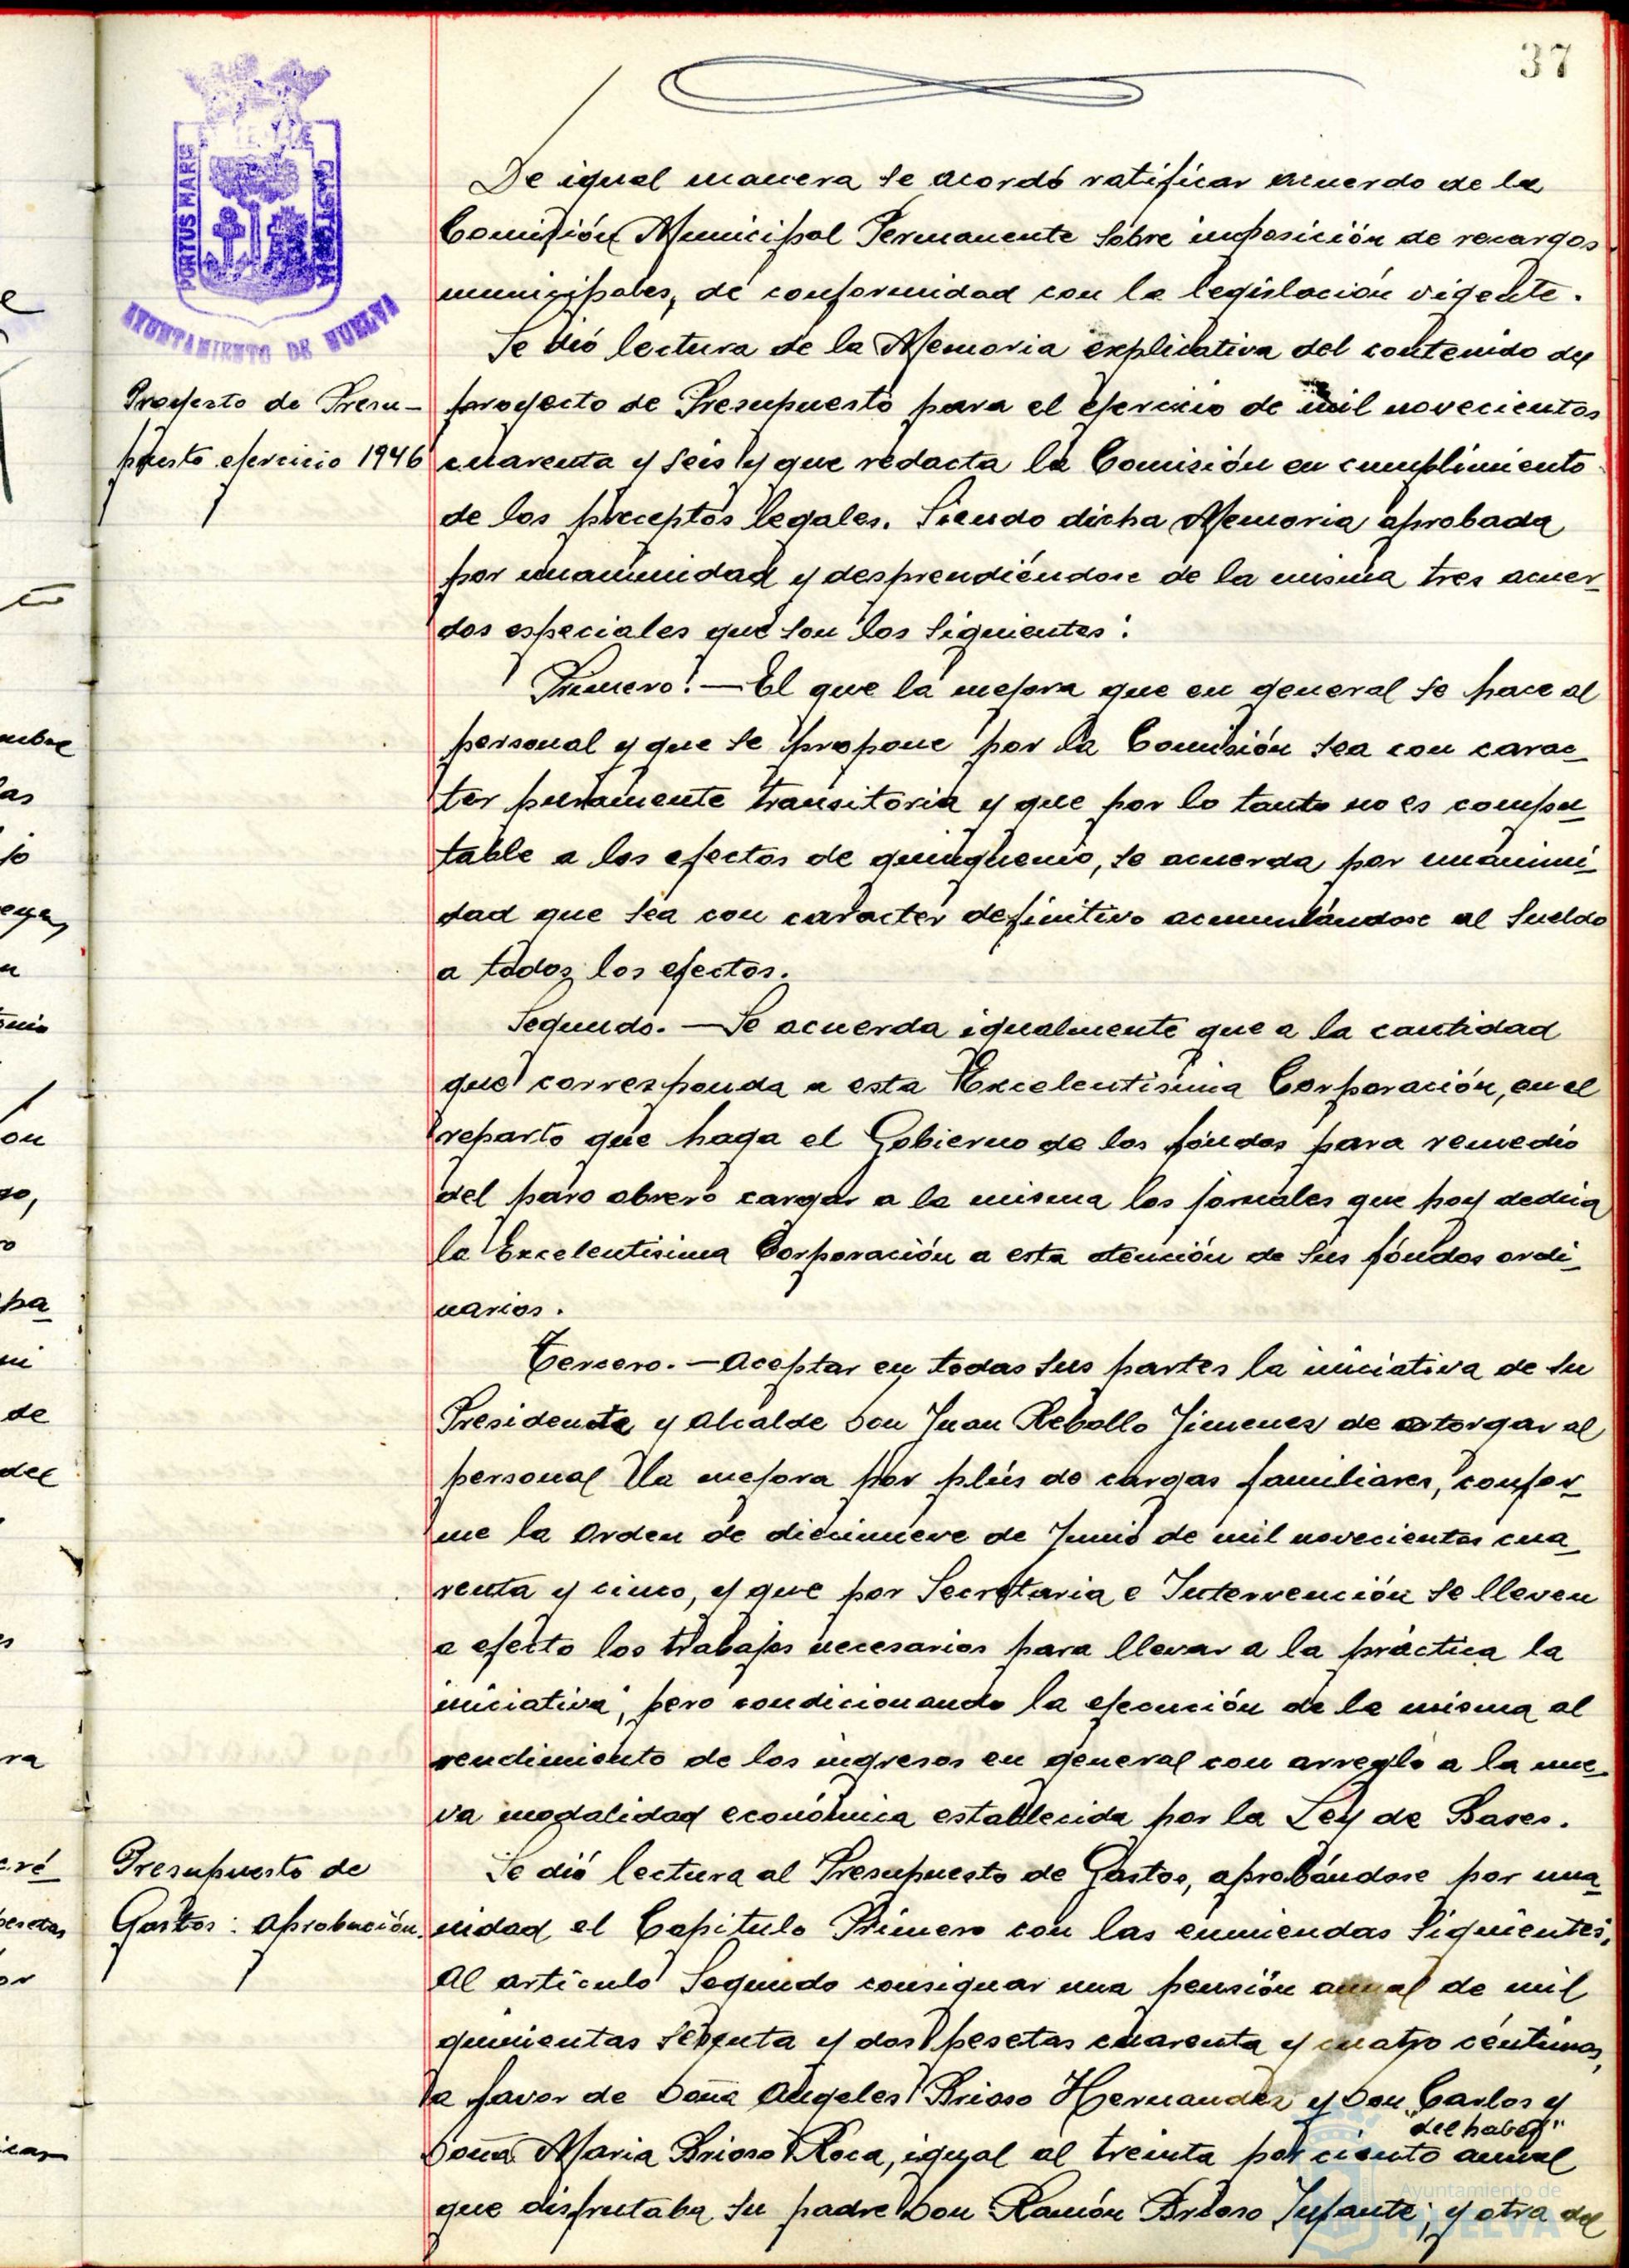 37
PORTUS MARIS
CUSTODIA
AYUNTAMIENTO DE HUELVA
De igual manera se acordó ratificar acuerdo de la
Comisión Municipal Permanente sobre imposición de recargos
municipales, de conformidad con la legislación vigente.
Se dió lectura de la Memoria explicativa del contenido del
Proyecto de Presu-
puesto ejercicio 1946
proyecto de Presupuesto para el ejercicio de mil novecientos
cuarenta y seis y que redacta la Comisión en cumplimiento
de los preceptos legales. Siendo dicha Memoria aprobada
por unanimidad y desprendiéndose de la misma tres acuer-
dos especiales que son los siguientes:
Primero.—El que la mejora que en general se hace al
personal y que se propone por la Comisión sea con carac-
ter puramente transitoria y que por lo tanto no es compu-
table a los efectos de quinquenio, se acuerda por unanimi-
dad que sea con caracter definitivo acumulándose al sueldo
a todos los efectos.
Segundo.—Se acuerda igualmente que a la cantidad
que corresponda a esta Excelentísima Corporación, en el
reparto que haga el Gobierno de los fóndos para remedio
del paro obrero cargar a la misma los jornales que hoy dedica
la Excelentisima Corporación a esta atención de sus fóndos ordi-
narios.
Tercero.—Aceptar en todas sus partes la iniciativa de su
Presidente y Alcalde Don Juan Rebollo Jimenez de otorgar al
personal la mejora por plús de cargas familiares, confor-
me la Orden de diecinueve de Junio de mil novecientos cua-
renta y cinco, y que por Secretaria e Intervención se lleven
a efecto los trabajos necesarios para llevar a la práctica la
iniciativa, pero condicionando la ejecución de la misma al
rendimiento de los ingresos en general con arreglo a la nue-
va modalidad económica establecida por la Ley de Bases.
Presupuesto de
Gastos: Aprobación.
Se dió lectura al Presupuesto de Gastos, aprobándose por una-
nidad el Capitulo Primero con las enmiendas siguientes,
Al artículo Segundo consignar una pensión anual de mil
quinientas y dos pesetas cuarenta y cuatro céntimos,
a favor de Doña Angeles Brioso Hernandez y Don Carlos y
"del haber"
Doña Maria Brioso Roca, igual al treinta por ciento anual
que disfrutaba su padre Don Ramón Brioso Infante; y otra del
Ayuntamiento de
HUELVA